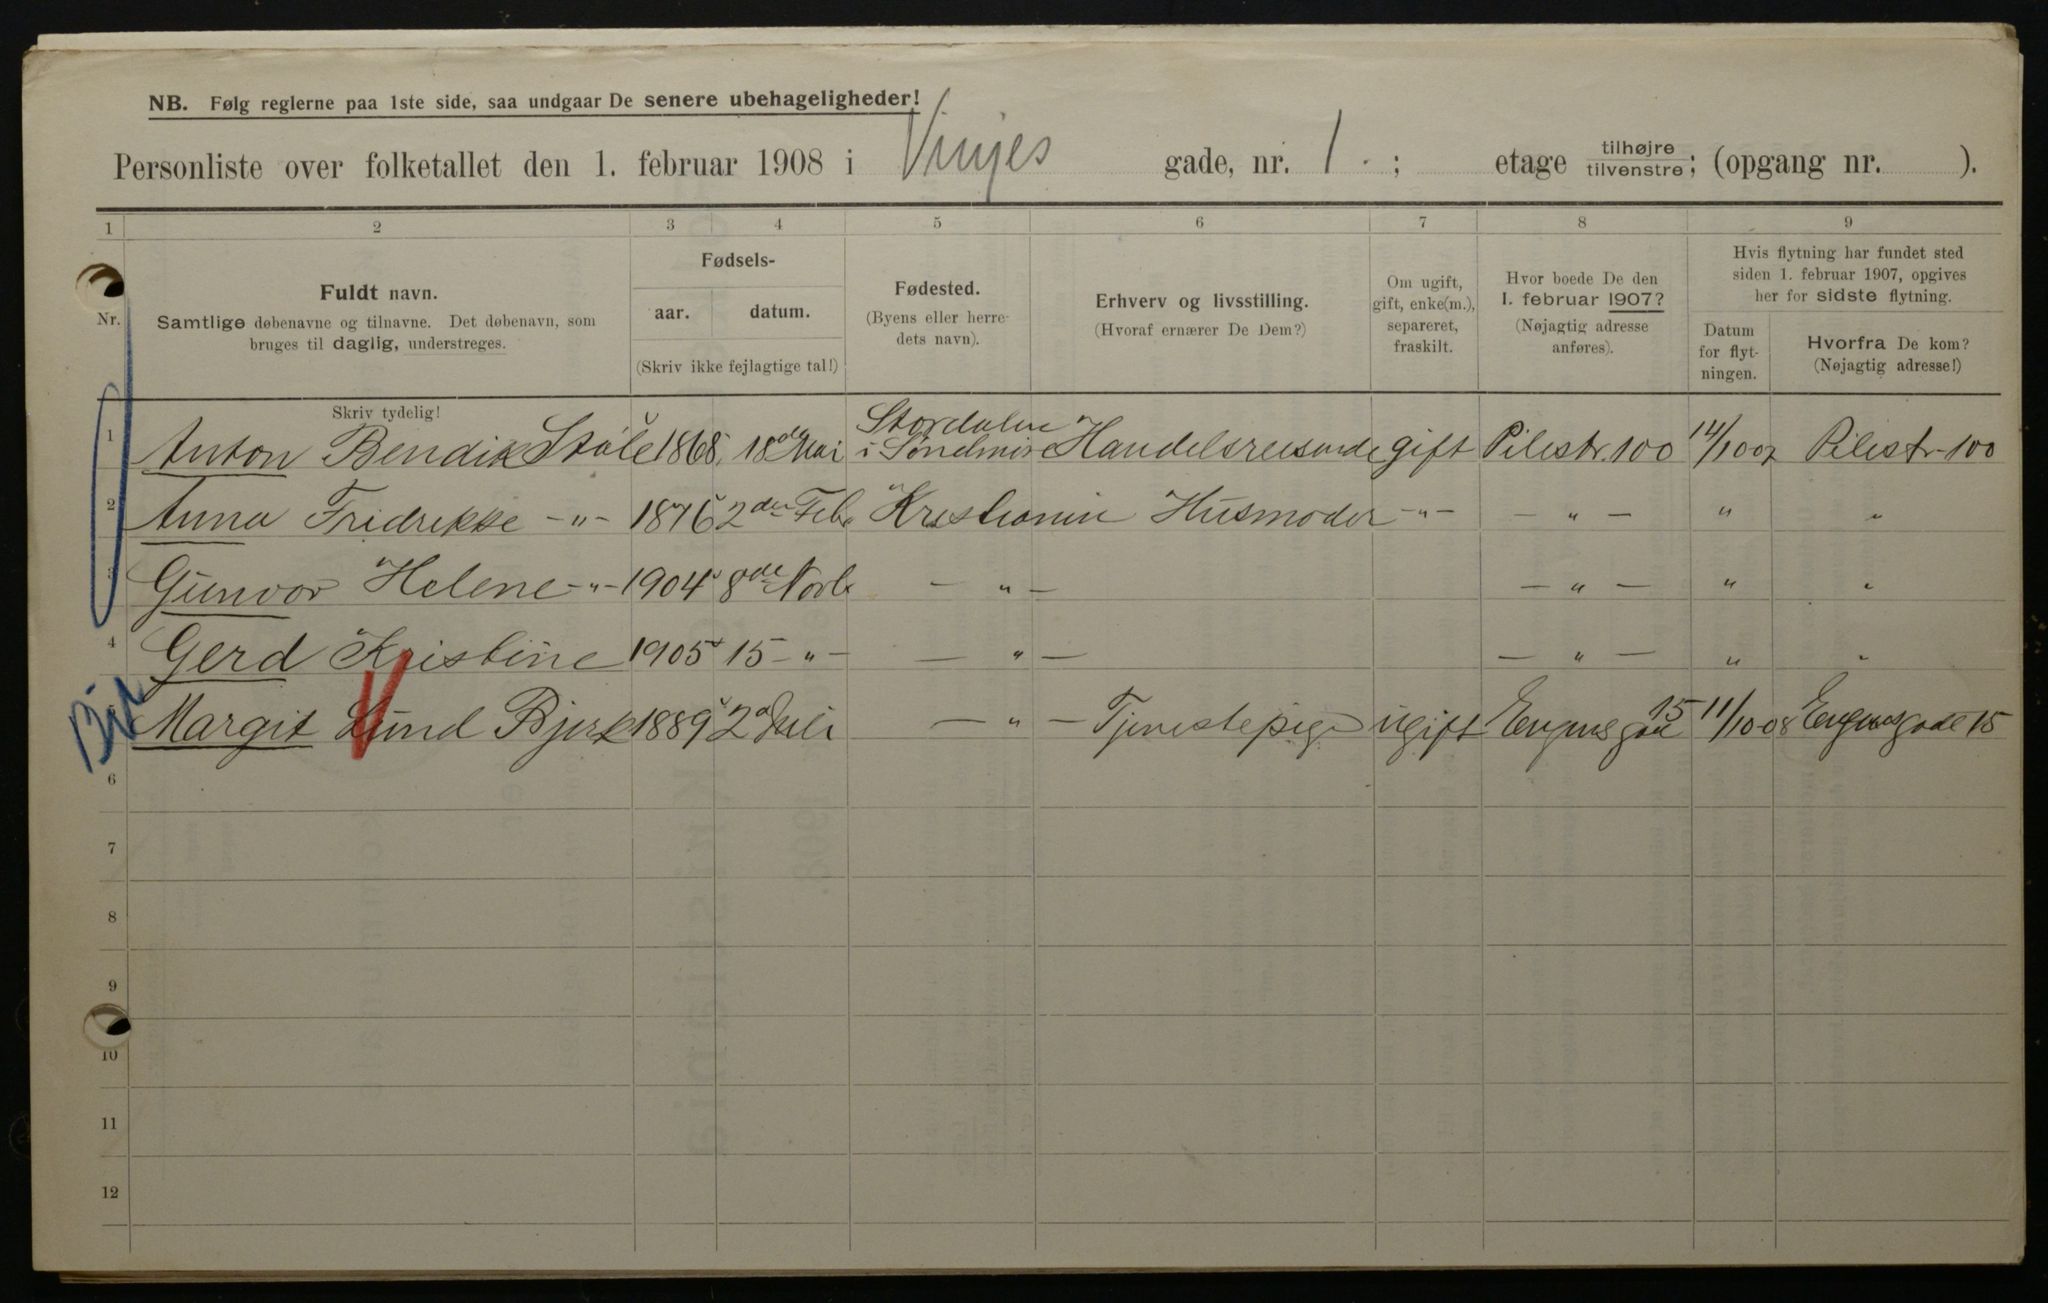 NB. Følg reglerne paa 1ste side, saa undgaar De senere ubehageligheder!
Personliste over folketallet den 1. februar 1908 i Vinjes gade, nr. 1. ; etage tilhøjre/tilvenstre; (opgang nr. ).
1 2 3 4 5 6 7 8 9
Nr.
Fuldt navn.
Samtlige døbenavne og tilnavne. Det døbenavn, som
bruges til daglig, understreges.
Skriv tydelig!
Fødsels-
aar. datum.
(Skriv ikke fejlagtige tal!)
Fødested.
(Byens eller herre-
dets navn).
Erhverv og livsstilling.
(Hvoraf ernærer De Dem?)
Om ugift,
gift, enke(m.),
separeret,
fraskilt.
Hvor boede De den
1. februar 1907?
(Nøjagtig adresse
anføres).
Hvis flytning har fundet sted
siden 1. februar 1907, opgives
her for sidste flytning.
Datum
for flyt-
ningen.
Hvorfra De kom?
(Nøjagtig adresse!)
1 Anton Bendik Ståle 1868 18de Mai Stordalen i Søndmøre Handelsreisende gift Pilestr. 100 14/10 07 Pilestr. 100
2 Anna Fridrikke -"- 1876 2den Feb. Kristiania Husmoder -"- - " - " "
3 Gunvor Helene -"- 1904 8de Novb - " - - " - " "
4 Gerd Kristine 1905 15 -"- - " - - " - " "
5 Margit Lund Bjerk 1889 2 Juli - " - Tjenestepige ugift 15 11/10-08 15
6
7
8
9
10
11
12